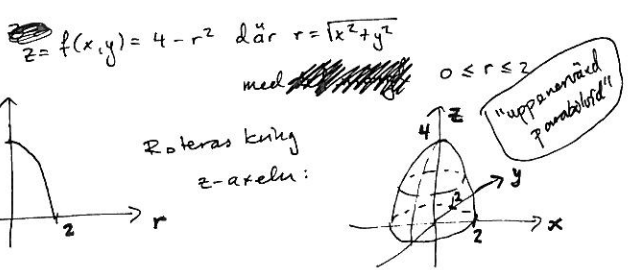 z = f(x,y) = 4 - r² där r = √x²+y²
med 0 ≤ r ≤ 2
"uppochnervänd
paraboloid"
4 z
Roteras kring
z-axeln:
y
2
2 r
2 x